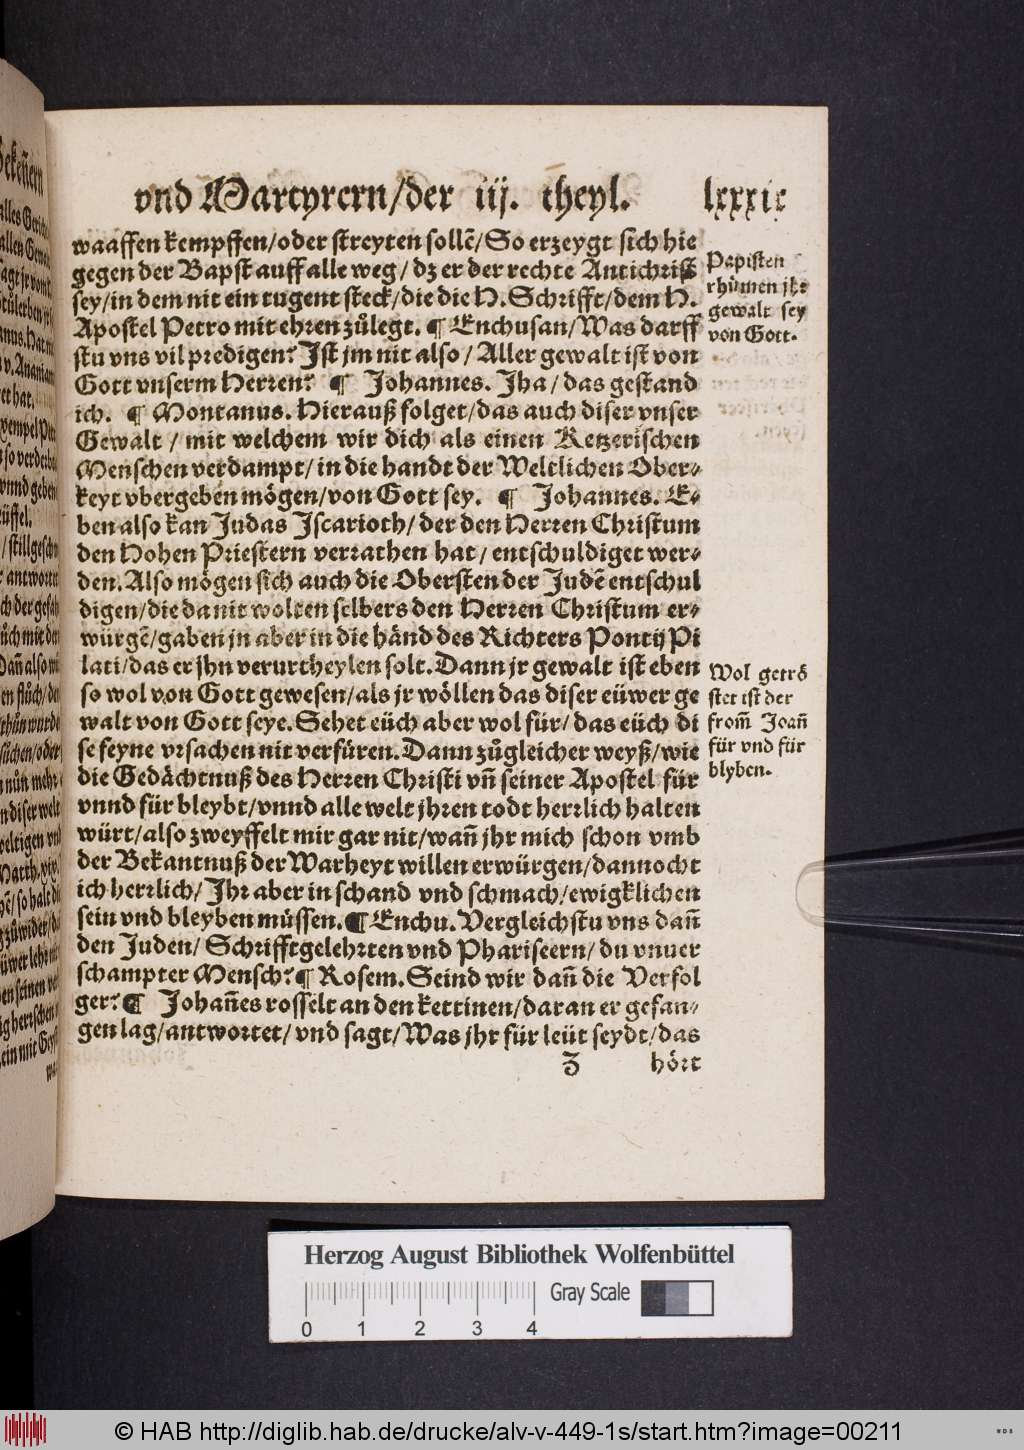 vnd Martyrern/der iij. theyl. lxxxix
waaffen kempffen/oder streyten sollẽ/So erzeygt sich hie
gegen der Bapst auff alle weg/dz er der rechte Antichrist
sey/in dem nit ein tugent steck/die die H. Schrifft/dem H.
Apostel Petro mit ehren zůlegt. ¶ Enchusan/Was darff
stu vns vil predigen? Ist jm nit also/Aller gewalt ist von
Gott vnserm Herren? ¶ Johannes. Jha/das gestand
ich. ¶ Montanus. Hierauß folget/das auch diser vnser
Gewalt/mit welchem wir dich als einen Ketzerischen
Menschen verdampt/in die handt der Weltlichen Ober-
keyt vbergeben mögen/von Gott sey. ¶ Johannes. E-
ben also kan Judas Iscarioth/der den Herren Christum
den Hohen Priestern verrathen hat/entschuldiget wer-
den. Also mögen sich auch die Obersten der Judẽ entschul
digen/die da nit wolten selbers den Herren Christum er-
würgẽ/gaben jn aber in die händ des Richters Pontij Pi
lati/das er jhn verurtheylen solt. Dann jr gewalt ist eben
so wol von Gott gewesen/als jr wöllen das diser eüwer ge
walt von Gott seye. Sehet eüch aber wol für/das eüch di
se feyne vrsachen nit verfüren. Dann zůgleicher weyß/wie
die Gedächtnuß des Herren Christi vñ seiner Apostel für
vnnd für bleybt/vnnd alle welt jhren todt herrlich halten
würt/also zweyffelt mir gar nit/wañ jhr mich schon vmb
der Bekantnuß der Warheyt willen erwürgen/dannocht
ich herrlich/Ihr aber in schand vnd schmach/ewigklichen
sein vnd bleyben müssen. ¶ Enchu. Vergleichstu vns dañ
den Juden/Schrifftgelehrten vnd Phariseern/du vnuer
schampter Mensch? ¶ Rosem. Seind wir dañ die Verfol
ger? ¶ Johañes rosselt an den kettinen/daran er gefan-
gen lag/antwortet/vnd sagt/Was jhr für leüt seydt/das
Z hört
Papisten
rhümen jhr
gewalt sey
von Gott.
Wol getrö
stet ist der
from̃ Joañ
für vnd für
blyben.
Herzog August Bibliothek Wolfenbüttel
Gray Scale
0 1 2 3 4
© HAB http://diglib.hab.de/drucke/alv-v-449-1s/start.htm?image=00211